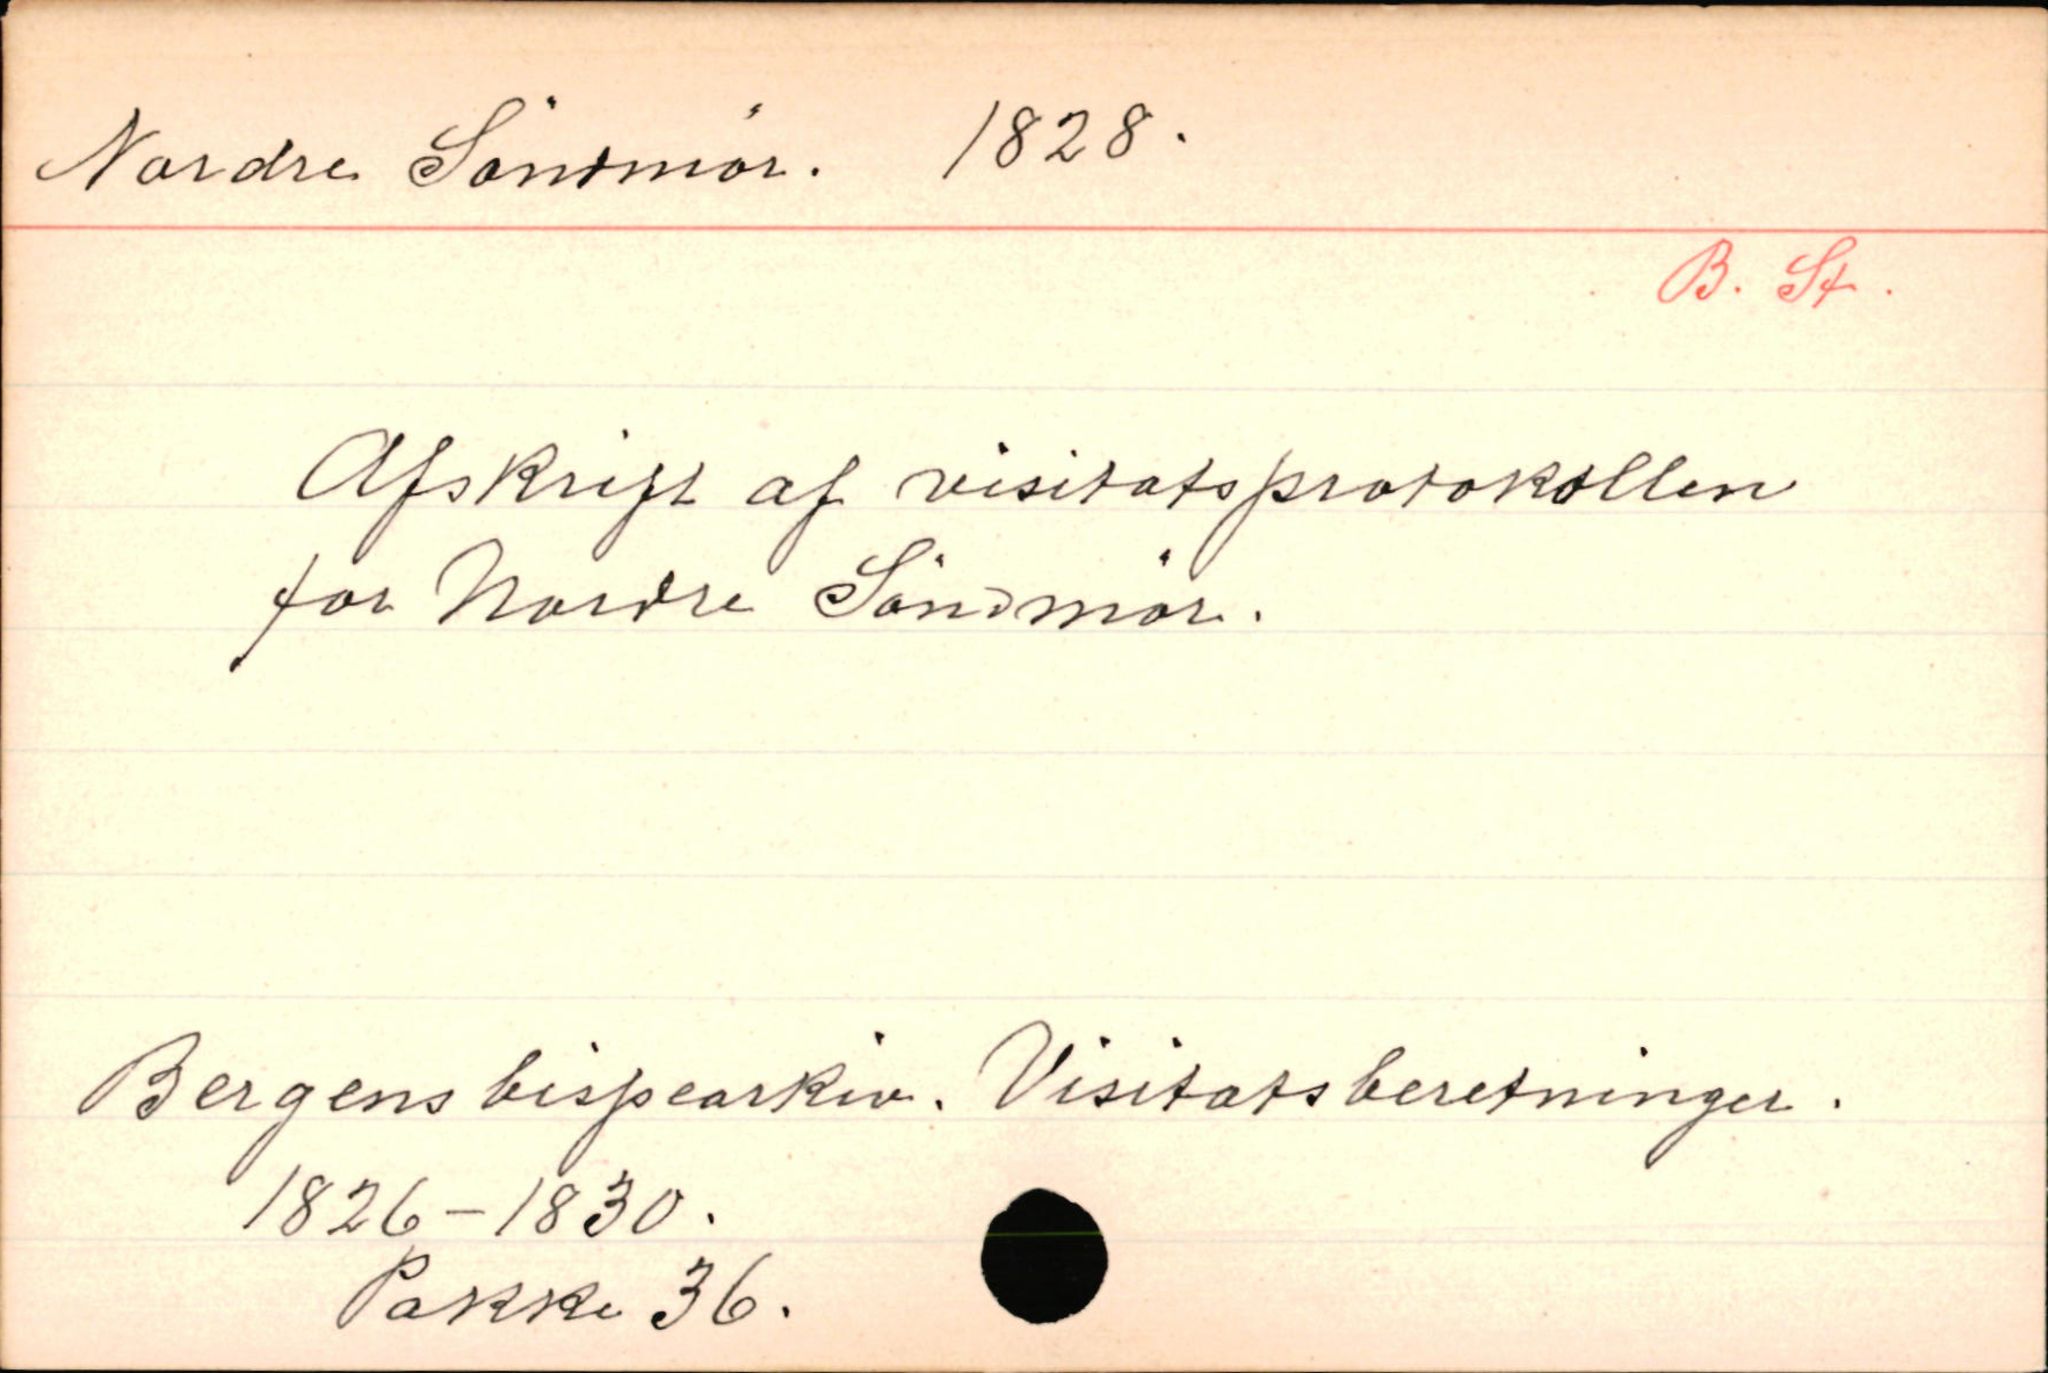 Nordre Söndmör. 1828.
B. St.
Afskrift af visitatsprotokollen
for Nordre Söndmör.
Bergens bispearkiv. Visitatsberetninger.
1826-1830.
Pakke 36.